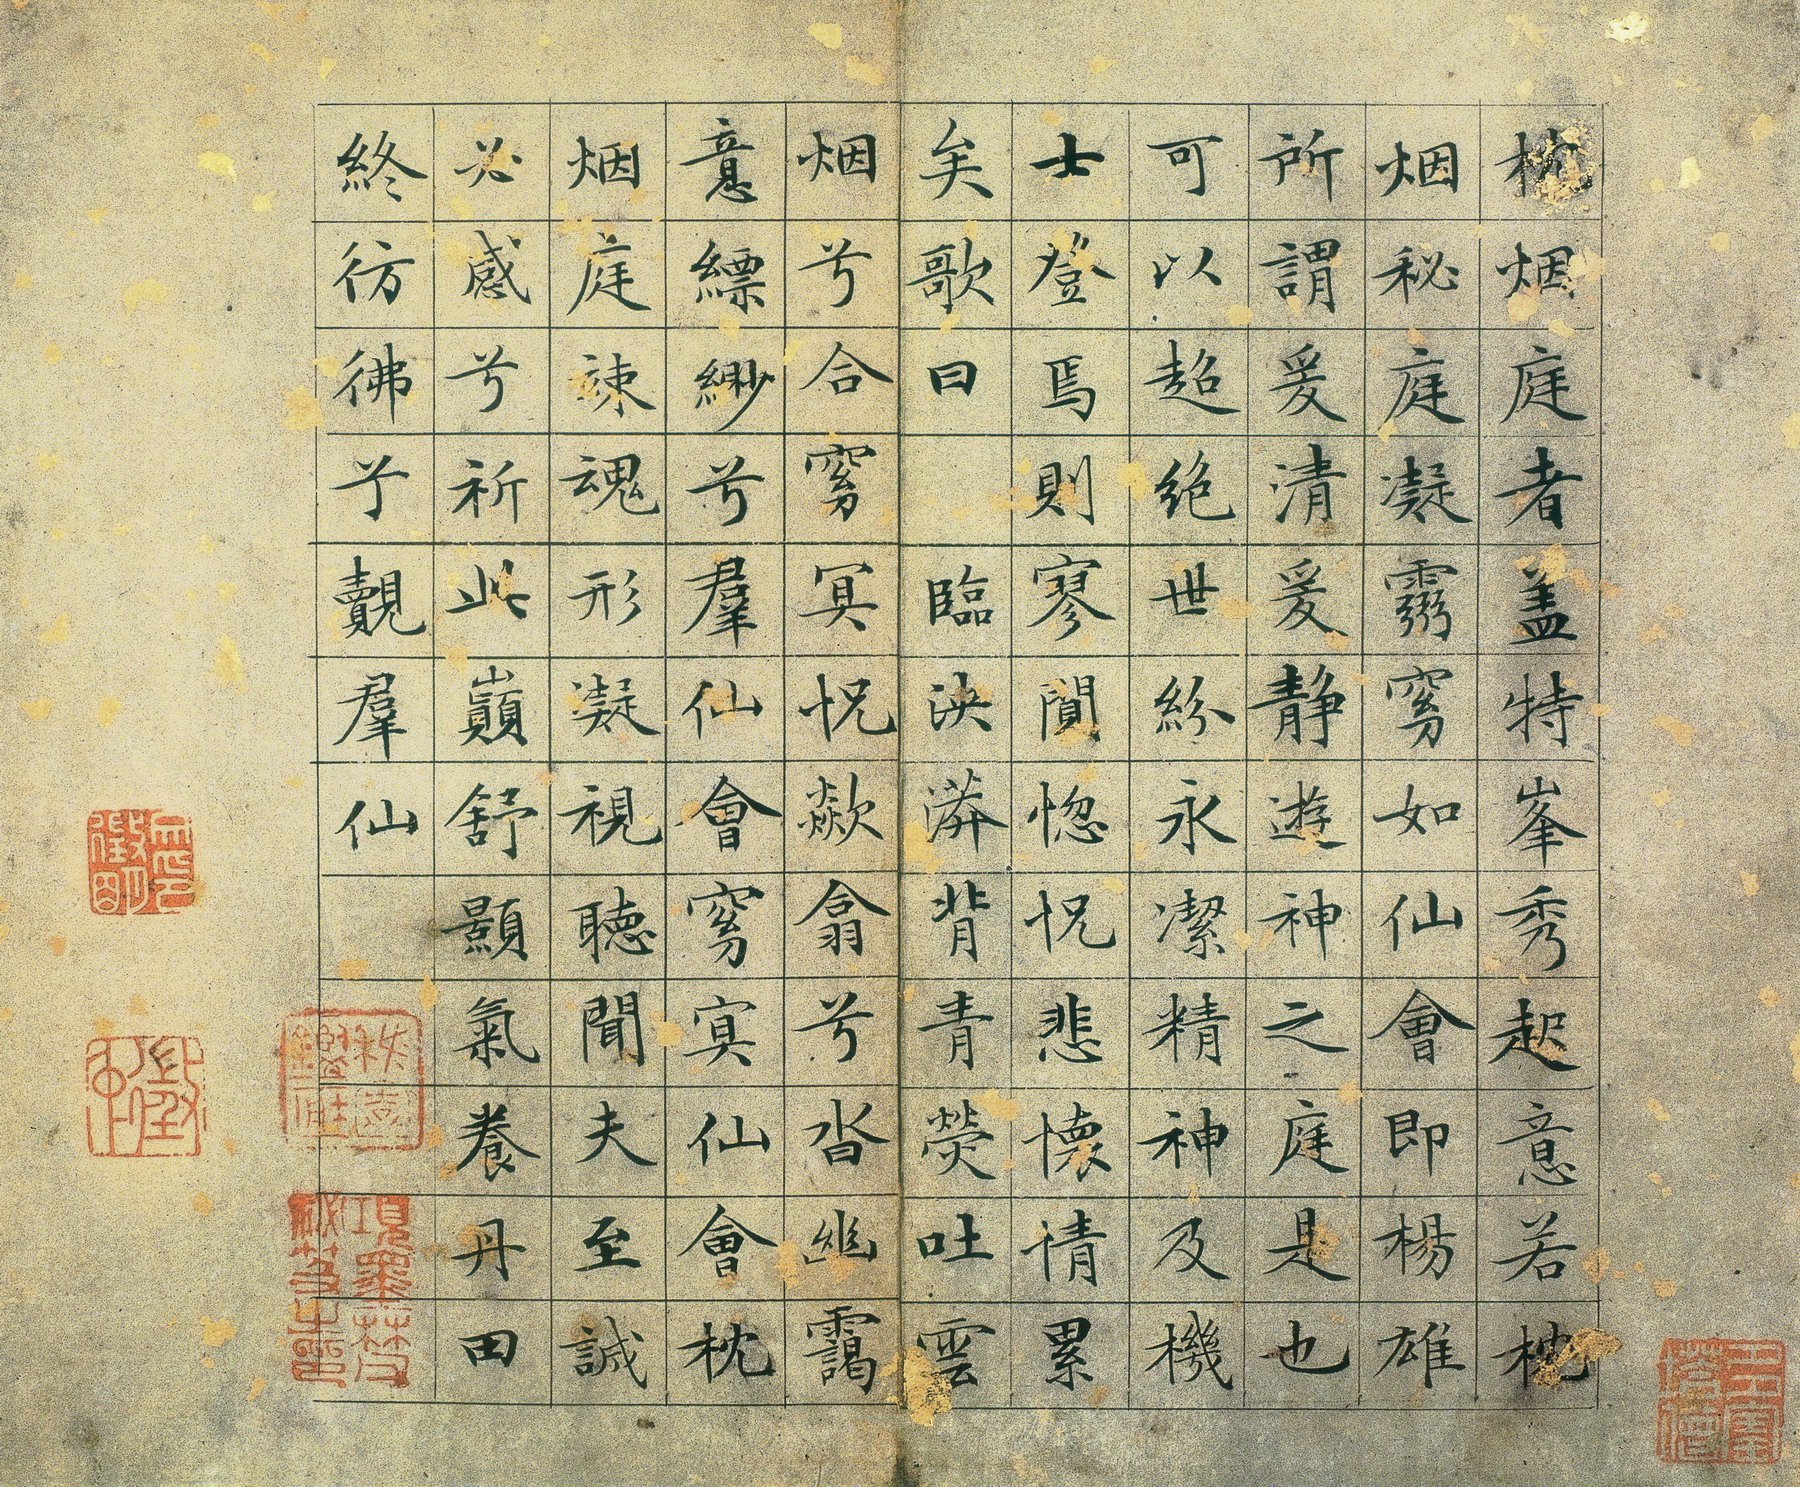 枕烟庭者盖特峯秀起意若枕
烟秘庭凝窈如仙會即楊雄
所謂爰清爰静遊神之庭是也
可以超絶世紛永潔精神及機
士登焉則寥闃惚怳悲懷情累
矣歌曰 臨泱漭背青熒吐雲
烟兮合窈冥怳欻翕兮沓幽靄
意縹緲兮羣仙會窈冥仙會枕
烟庭竦魂形凝視聽聞夫至誠
必感兮祈此巔舒顥氣養丹田
終彷彿兮覿羣仙
項墨林父秘笈之印